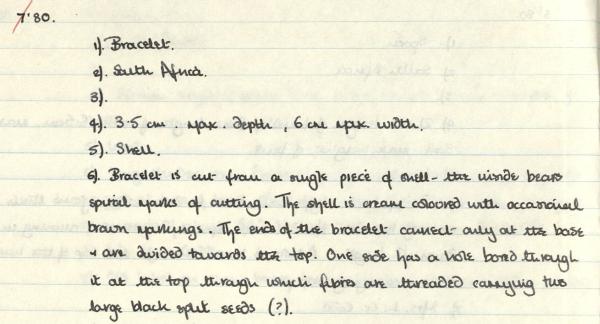 7'80.
1). Bracelet.
2). South Africa.
3).
4). 3.5 cm max. depth, 6 cm max. width.
5). Shell.
6). Bracelet is cut from a single piece of shell - the inside bears
spiral marks of cutting. The shell is cream coloured with occasional
brown markings. The ends of the bracelet connect only at the base
+ are divided towards the top. One side has a hole bored through
it at the top through which fibres are threaded carrying two
large black split seeds (?).